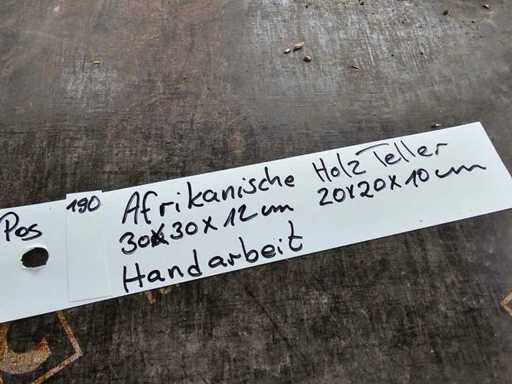 Pos 190
Afrikanische Holz Teller
30x30x12cm 20x20x10cm
Handarbeit